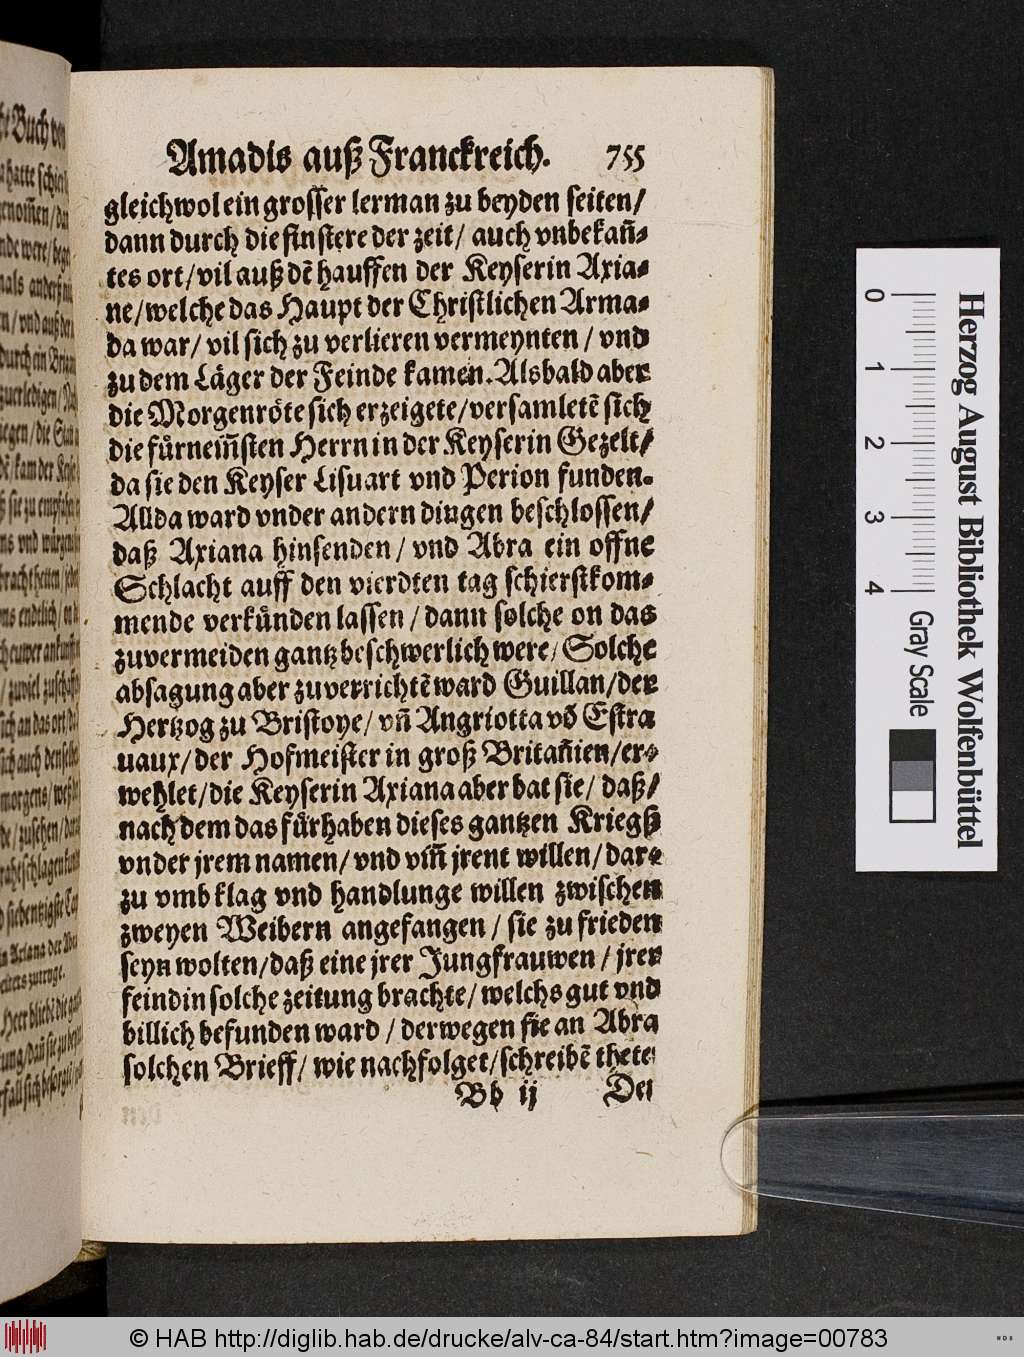 Amadis auß Franckreich. 755
gleichwol ein grosser lerman zu beyden seiten/
dann durch die finstere der zeit/ auch vnbekañ-
tes ort/ vil auß dẽ hauffen der Keyserin Axia-
ne/ welche das Haupt der Christlichen Arma-
da war/ vil sich zu verlieren vermeynten / vnd
zu dem Läger der Feinde kamen. Alsbald aber
die Morgenröte sich erzeigete/ versamletẽ sich
die fürnem̃sten Herrn in der Keyserin Gezelt/
da sie den Keyser Lisuart vnd Perion funden.
Allda ward vnder andern dingen beschlossen/
daß Axiana hinsenden / vnd Abra ein offne
Schlacht auff den vierdten tag schierstkom-
mende verkünden lassen / dann solche on das
zuvermeiden gantz beschwerlich were/ Solche
absagung aber zuverrichtẽ ward Guillan/ der
Hertzog zu Bristoye/ vñ Angriotta võ Estra
uaux/ der Hofmeister in groß Britañien/ er-
wehlet/ die Keyserin Axiana aber bat sie/ daß/
nach dem das fürhaben dieses gantzen Kriegß
vnder jrem namen/ vnd vm̃ jrent willen/ dar-
zu vmb klag vnd handlunge willen zwischen
zweyen Weibern angefangen / sie zu frieden
seyn wolten/ daß eine jrer Jungfrauwen / jrer
feindin solche zeitung brachte/ welchs gut vnd
billich befunden ward / derwegen sie an Abra
solchen Brieff/ wie nachfolget/ schreibẽ thete
Bb ij Der
Herzog August Bibliothek Wolfenbüttel
0 1 2 3 4 Gray Scale
© HAB http://diglib.hab.de/drucke/alv-ca-84/start.htm?image=00783